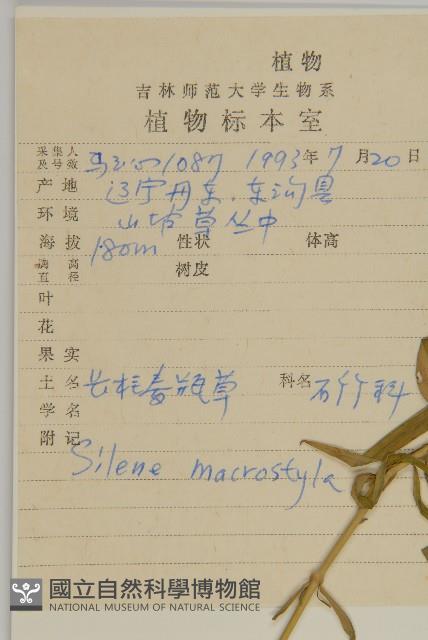 植物
吉林师范大学生物系
植物标本室
采集人及号数 1087 1993年7月20日
产地 辽宁丹东．东沟县
环境 山坡草丛中
海拔 180m 性状 体高
胸高直径 树皮
叶
花
果实
土名 长柱麦瓶草 科名 石竹科
学名
附记 Silene macrostyla
國立自然科學博物館
NATIONAL MUSEUM OF NATURAL SCIENCE